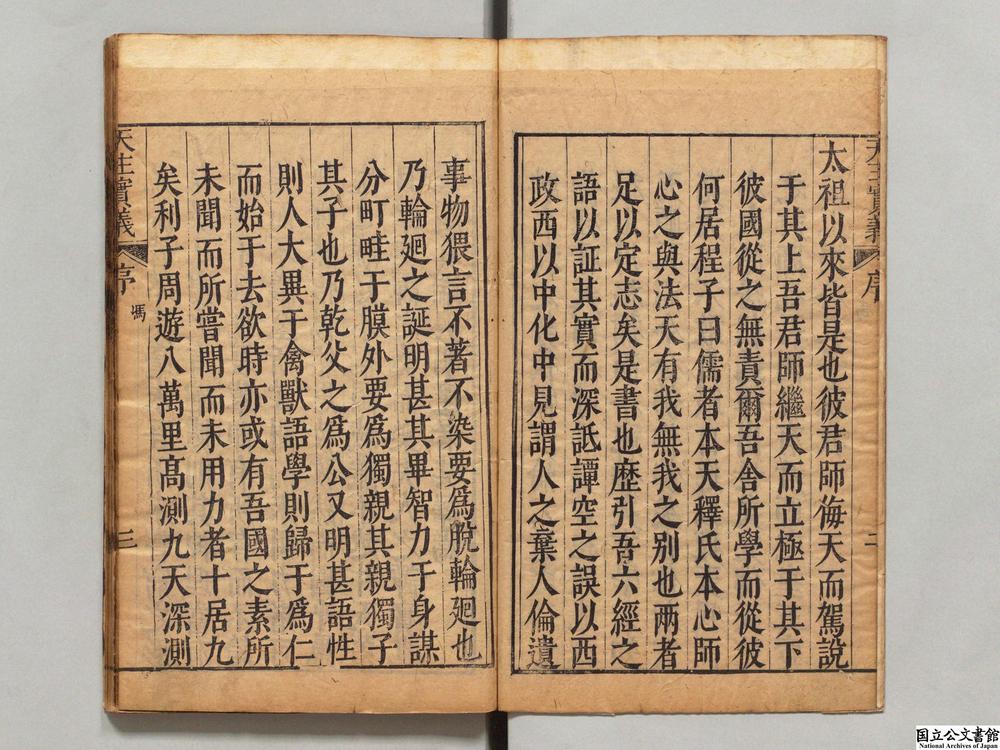 太祖以來皆是也彼君師侮天而駕說
于其上吾君師繼天而立極于其下
彼國從之無責爾吾舍所學而從彼
何居程子曰儒者本天釋氏本心師
心之與法天有我無我之别也兩者
足以定志矣是書也歷引吾六經之
語以証其實而深詆譚空之誤以西
政西以中化中見謂人之棄人倫遺
天主實義
序
二
事物猥言不著不染要爲脫輪廻也
乃輪廻之誕明甚其畢智力于身謀
分町畦于膜外要爲獨親其親獨子
其子也乃乾父之爲公又明甚語性
則人大異于禽獸語學則歸于爲仁
而始于去欲時亦或有吾國之素所
未聞而所嘗聞而未用力者十居九
矣利子周遊八萬里高測九天深測
天主實義
序
馮
三
国立公文書館
National Archives of Japan